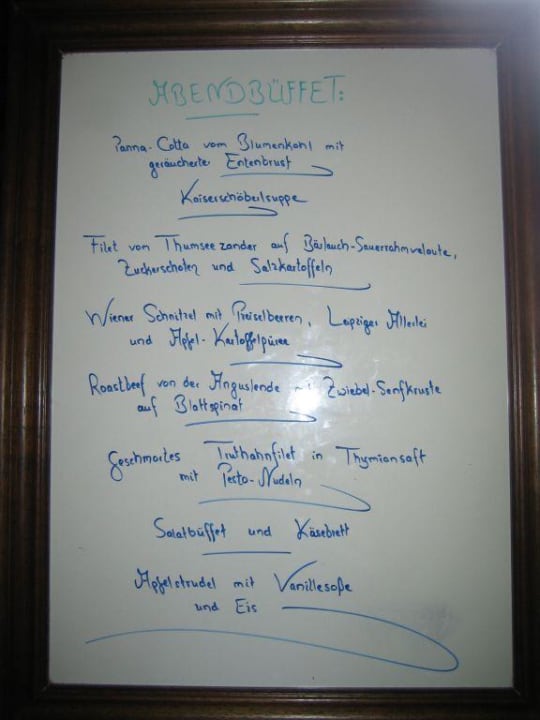 ABENDBÜFFET:
Panna-Cotta vom Blumenkohl mit
geräucherter Entenbrust
Kaiserschöberlsuppe
Filet von Thumseezander auf Bärlauch-Sauerrahmveloute,
Zuckerschoten und Salzkartoffeln
Wiener Schnitzel mit Preiselbeeren, Leipziger Allerlei
und Apfel-Kartoffelpüree
Roastbeef von der Anguslende mit Zwiebel-Senfkruste
auf Blattspinat
Geschmortes Truthahnfilet in Thymiansaft
mit Pesto-Nudeln
Salatbüffet und Käsebrett
Apfelstrudel mit Vanillesoße
und Eis